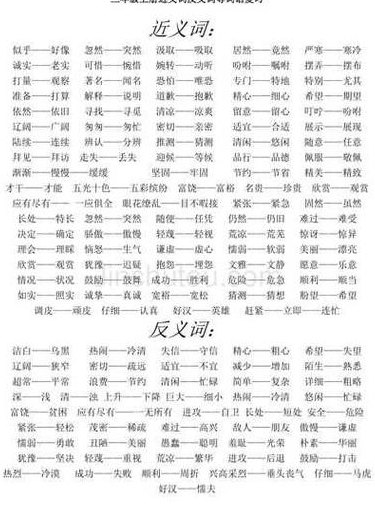 近义词：
似乎——好像 忽然——突然 汲取——吸取 居然——竟然 严寒——寒冷
诚实——老实 可惜——惋惜 婉转——动听 吩咐——嘱咐 摆弄——摆布
打量——观察 著名——闻名 恐怕——唯恐 专门——特地 特别——尤其
准备——打算 解释——说明 道歉——抱歉 精心——细心 希望——期望
依然——依旧 寻找——寻觅 清凉——凉爽 留意——留心 叮咛——吩咐
辽阔——广阔 匆匆——匆忙 密切——亲密 适宜——合适 展示——展现
陆续——连续 辨认——分辨 推测——猜测 清闲——悠闲 随意——任意
拜见——拜访 走失——丢失 迎候——等候 品行——品德 佩服——敬佩
渐渐——慢慢——缓缓 坚固——牢固 节约——节省 精美——精致
才干——才能 五光十色——五彩缤纷 富饶——富裕 名贵——珍贵 欣赏——观赏
应有尽有——一应俱全 眼花缭乱——目不暇接 紧张——紧急 固然——虽然
长处——特长 忽然——突然 随便——任凭 仍然——仍旧 难过——难受
决定——确定 骄傲——傲慢 轻蔑——轻视 荒凉——荒芜 惊讶——惊异
理会——理睬 恼怒——生气 谦虚——虚心 懦弱——软弱 美丽——漂亮
欣赏——观赏 犹豫——迟疑 抱怨——埋怨 文雅——文静 愿意——乐意
情况——状况 鼓励——鼓舞 成功——胜利 危险——危急 顺利——顺当
如实——照实 诚挚——真诚 宽裕——宽松 猜测——猜想 盼望——希望
调皮——顽皮 仔细——认真 好汉——英雄 赶紧——立即——连忙
反义词：
洁白——乌黑 热闹——冷清 失信——守信 精心——粗心 希望——失望
辽阔——狭窄 密切——疏远 适宜——不宜 减少——增加 陌生——熟悉
超常——平常 浪费——节约 清闲——忙碌 简单——复杂 详细——粗略
深—浅 清——浊 上升—下降 巨大—细小 热闹—冷清 悠闲—忙碌
富饶——贫困 应有尽有——一无所有 进攻——自卫 长处——短处 安全——危险
紧张——轻松 茂密——稀疏 难过——高兴 敌人——朋友 傲慢——谦虚
懦弱——勇敢 丑陋——美丽 愚蠢——聪明 羞耻——光荣 朴素——华丽
犹豫——坚决 轻蔑——重视 荒凉——繁华 进攻——后退 鼓励——打击
热烈——冷漠 成功——失败 顺利——周折 兴高采烈——垂头丧气 仔细——马虎
好汉——懦夫